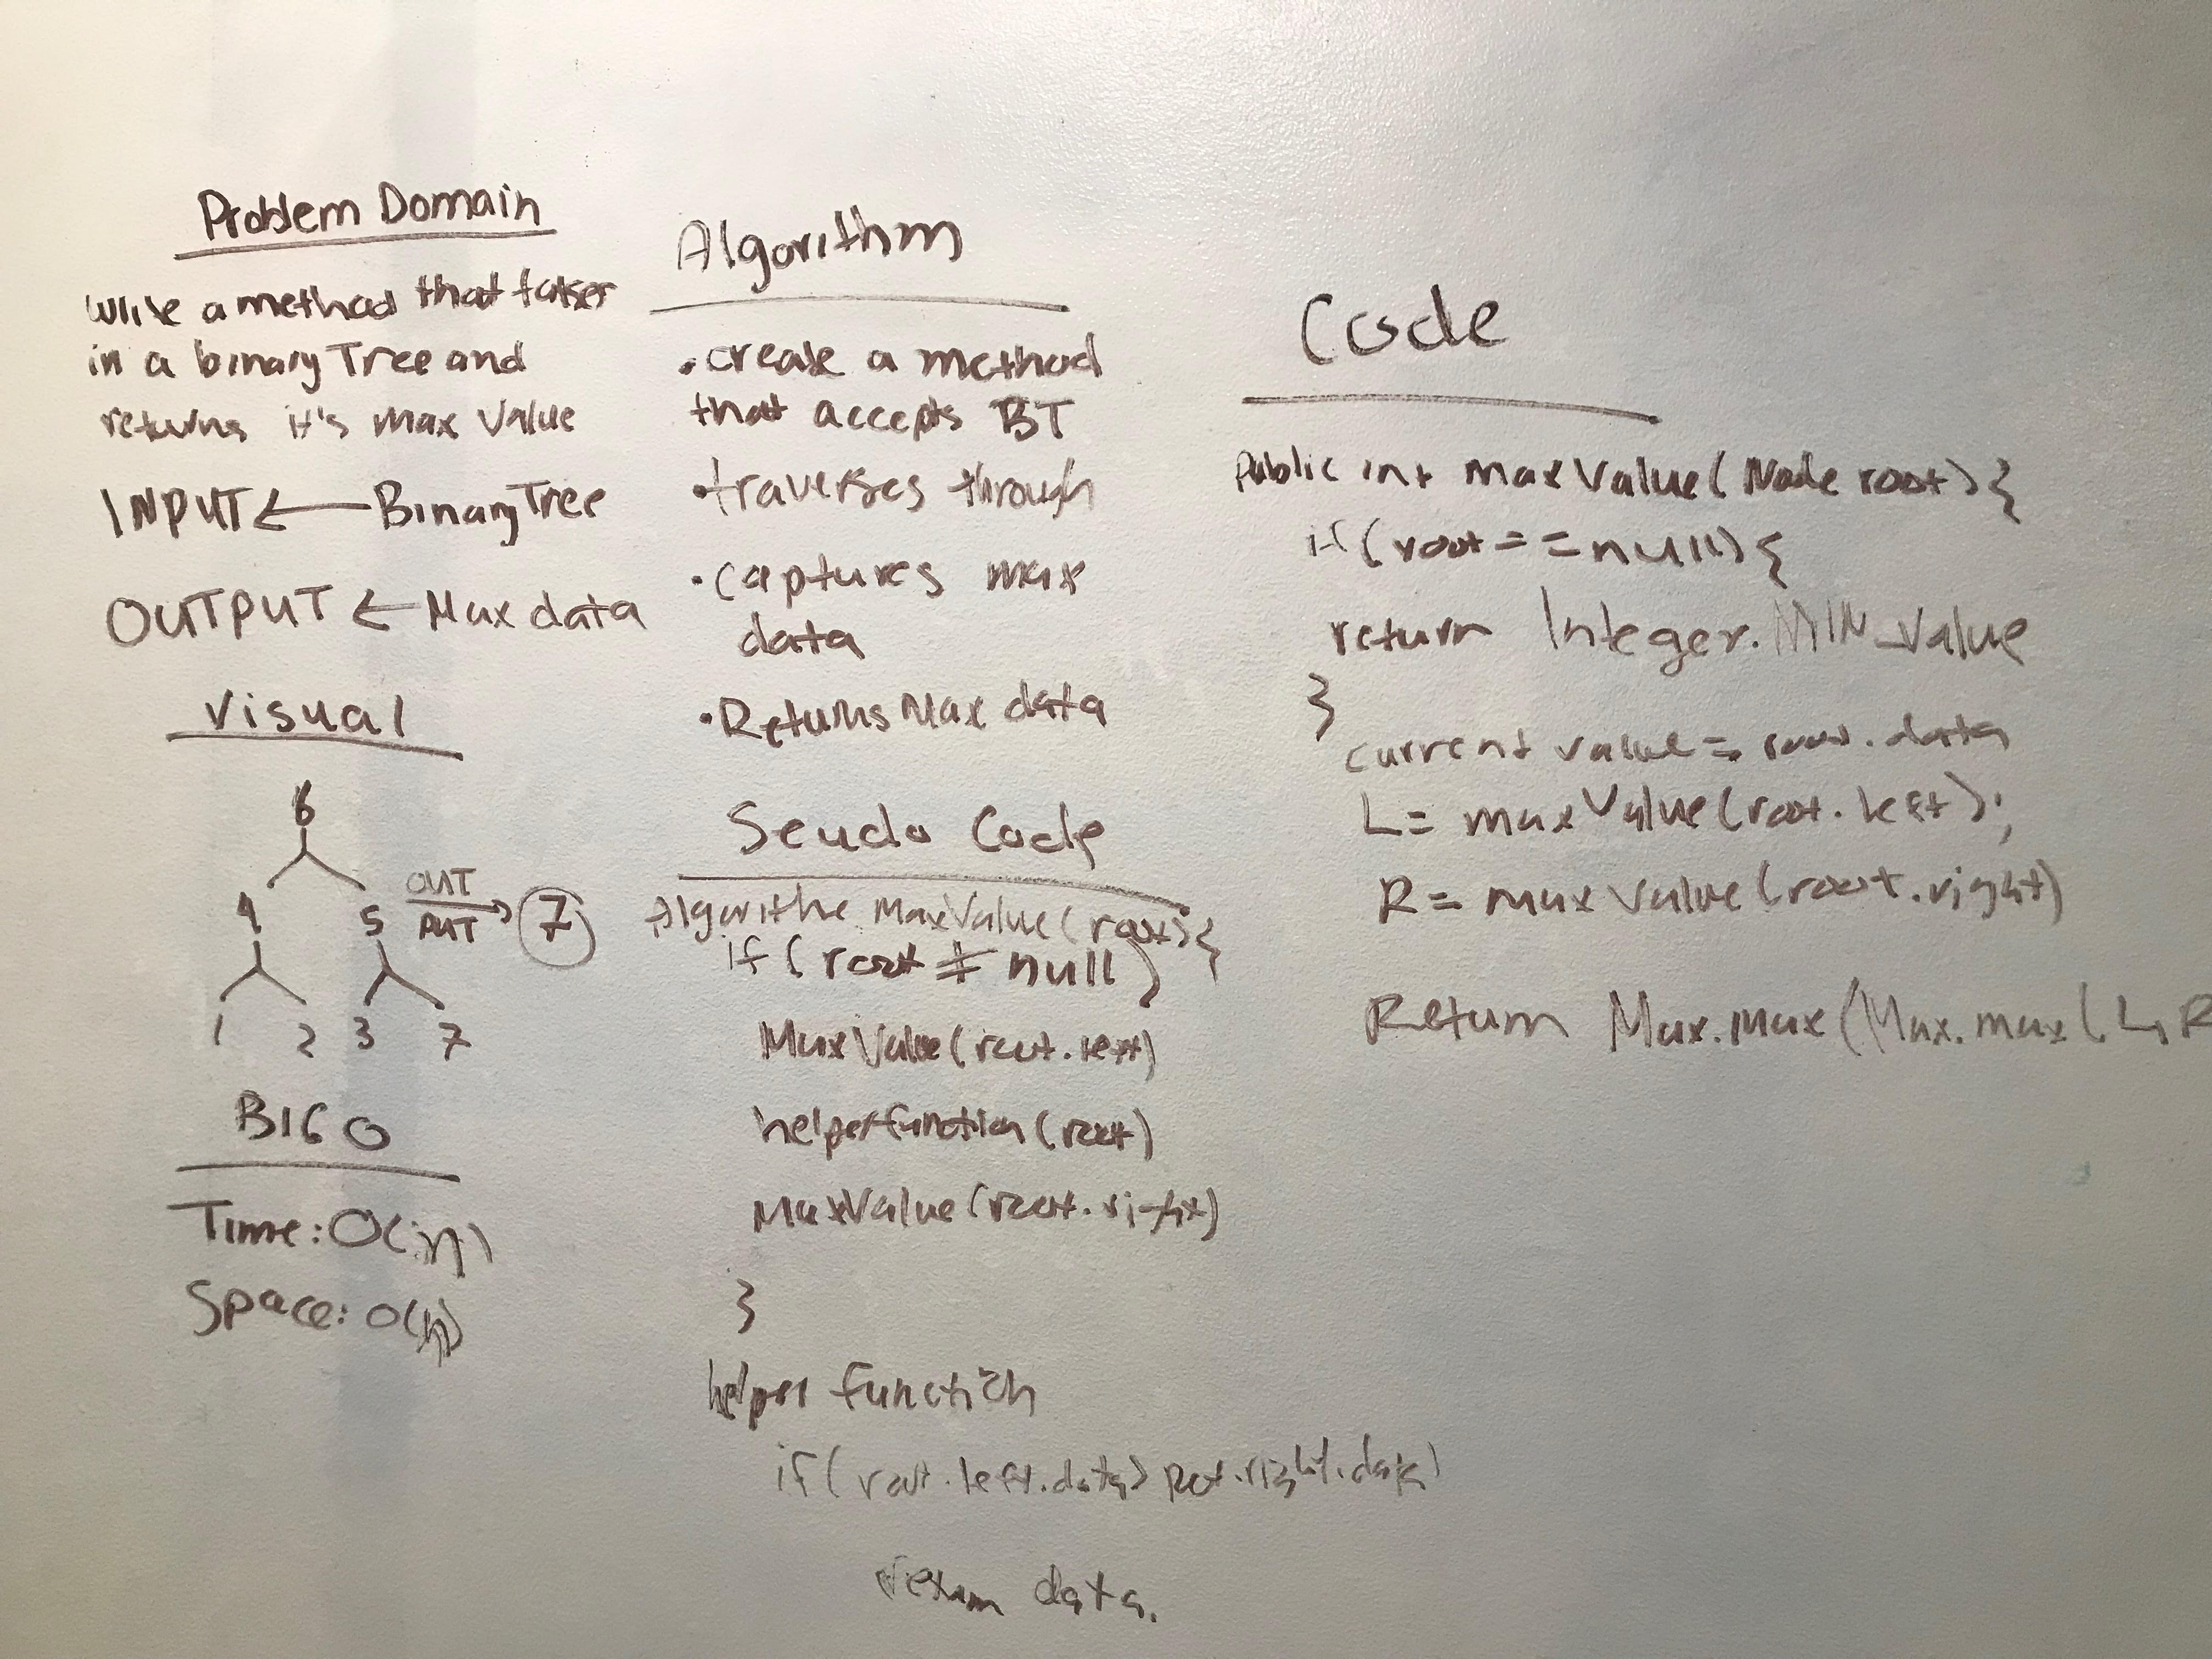 Problem Domain
Write a method that takes
in a binary Tree and
returns it's max Value
INPUT ← Binary Tree
OUTPUT ← Max data
Visual
6
4 5 OUT PUT → 7
1 2 3 7
BIG O
Time: O(n)
Space: O(h)
Algorithm
• create a method
that accepts BT
• traverses through
• captures max
data
• Returns Max data
Seudo Code
Algorithe MaxValue(root){
if (root ≠ null)
MaxValue(root.left)
helperfunction(root)
MaxValue(root.right)
}
helper function
if(root.left.data > root.right.data)
return data.
Code
Public int maxValue(Node root){
if(root==null){
return Integer.MIN_Value
}
current value = root.data
L= maxValue(root.left);
R= maxValue(root.right)
Return Max.max(Max.max(L,R